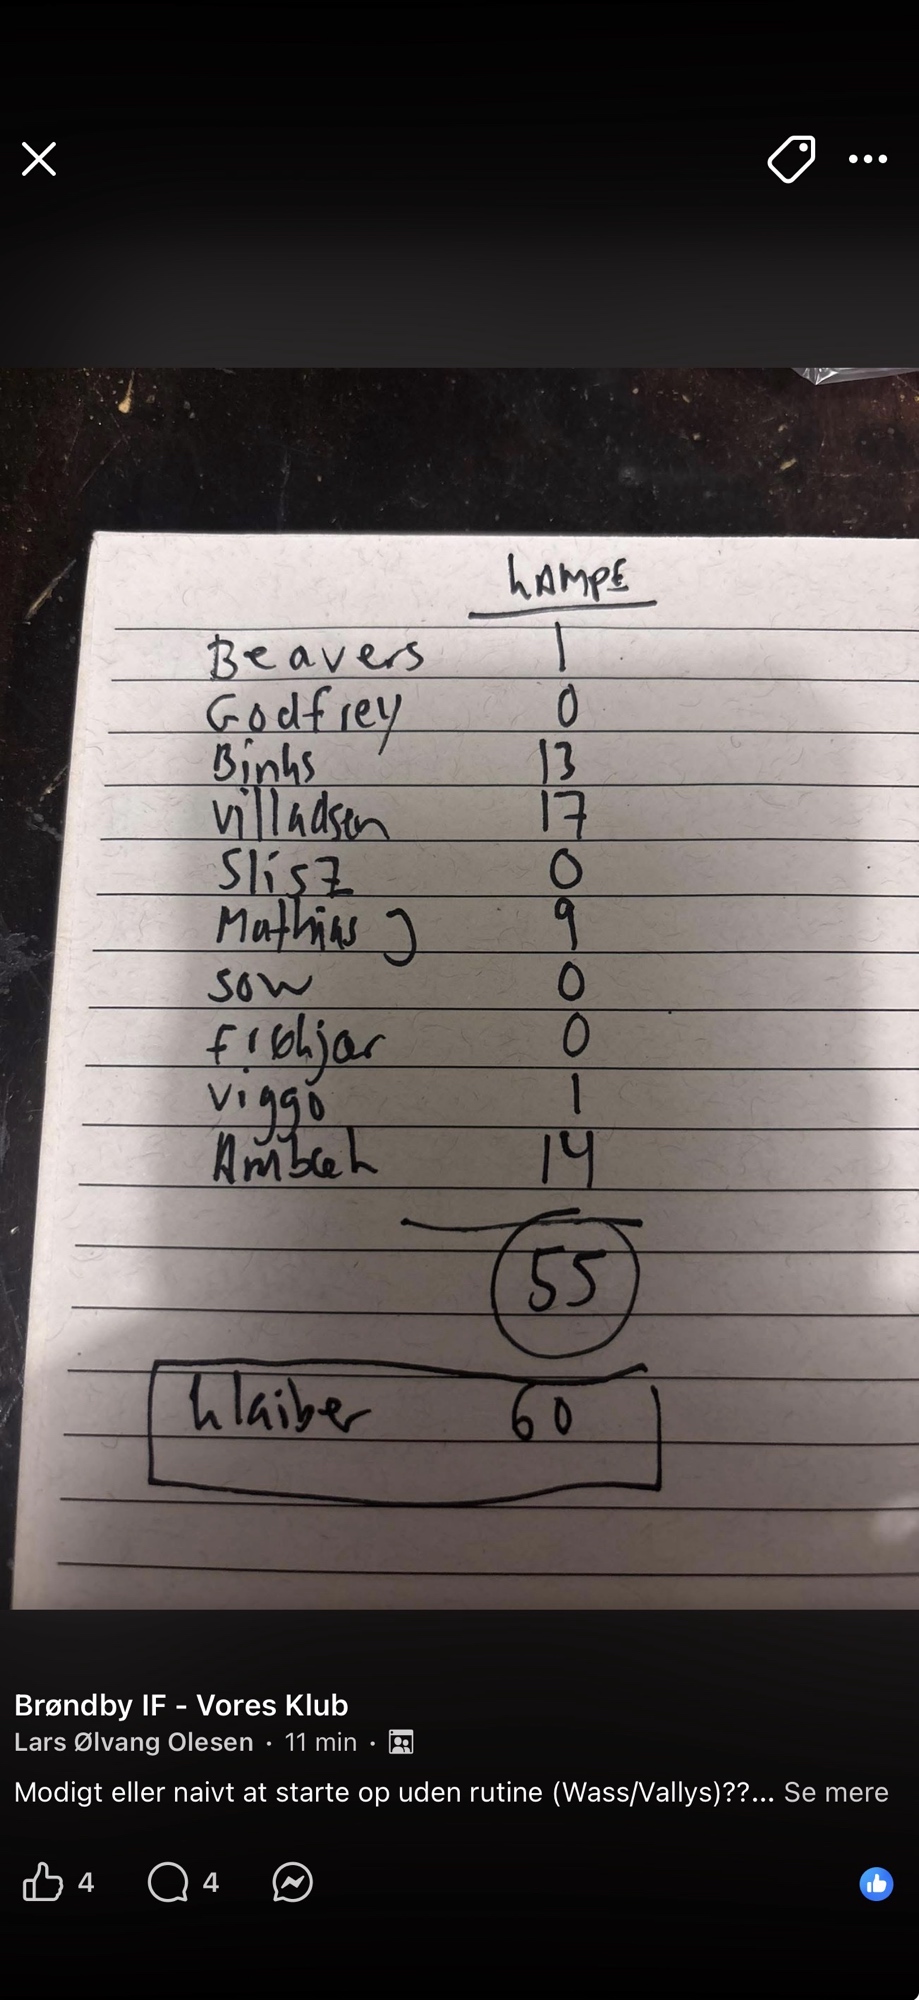 kAMPE
Beavers 1
Godfrey 0
Binks 13
Villadsen 17
Slisz 0
Mathias J 9
Sow 0
Frökjær 0
Viggo 1
Ambæk 14
55
Klaiber 60
Brøndby IF - Vores Klub
Lars Ølvang Olesen · 11 min ·
Modigt eller naivt at starte op uden rutine (Wass/Vallys)??... Se mere
4 4